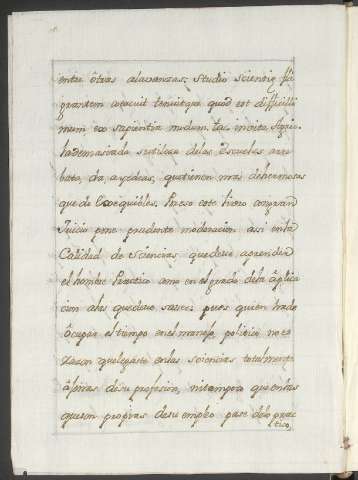 entre ôtras alavanzas; Studio scientię fla
grantem coercuit tenuitque quod est difficilli
mum ex sapientia modum. Lac
la demasiada sutileza delas Escuelas arre
bata, da, ayedeas, quetienen mas deshermosas
que de Exequibles. Pareso este livro compran
Juicio pone prudente moderacion assi enla
Calidad de Sciencias quedeve aprender
el hombre Practico como en el grado dela âplica
cion alas quedeve saver; pues quien hade
ôcupar el tiempo en el manejo politico no es
razon quelegaste enlas sciencias totalmente
âgenas desu profesion, nitampoco que enlas
queson propias desu empleo pase delo prac
tico,